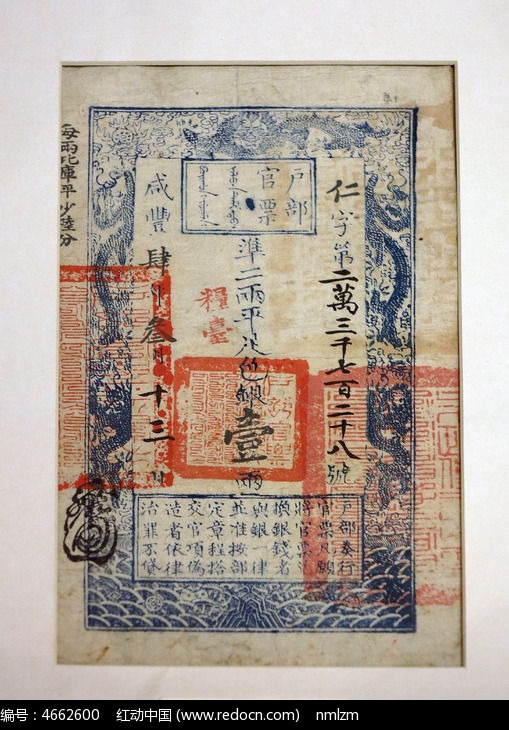 戶部
官票
仁字第二萬三千七百二十八號
準二兩平足色銀壹兩
糧臺
咸豐肆年叁月十三日
每兩比庫平少陸分
戶部奏行
官票凡願
將官票兌
換銀錢者
與銀一律
並准按部
定章程搭
交官項偽
造者依律
治罪不貸
编号：4662600 红动中国 (www.redocn.com) nmlzm